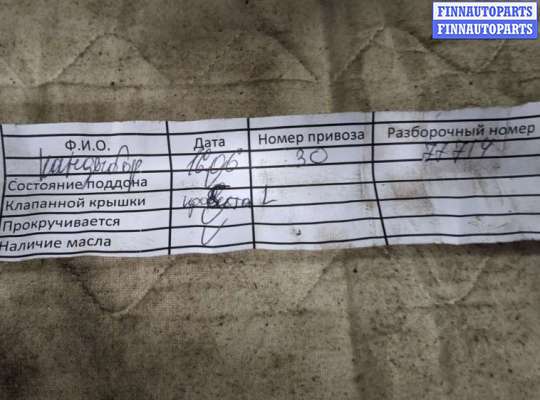 FINNAUTOPARTS
FINNAUTOPARTS
Ф.И.О. Дата Номер привоза Разборочный номер
16.06 30 77714
Состояние поддона
Клапанной крышки
Прокручивается
Наличие масла